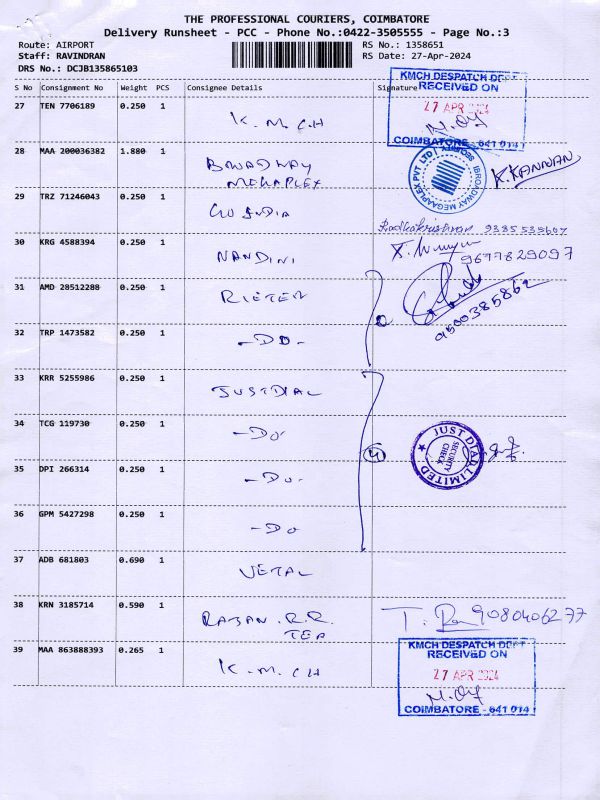 THE PROFESSIONAL COURIERS, COIMBATORE
Delivery Runsheet - PCC - Phone No.:0422-3505555 - Page No.:3
Route: AIRPORT RS No.: 1358651
Staff: RAVINDRAN RS Date: 27-Apr-2024
DRS No.: DCJB135865103
S No Consignment No Weight PCS Consignee Details Signature
KMCH DESPATCH DEPT
RECEIVED ON
27 APR 2024
COIMBATORE - 641 014
27 TEN 7706189 0.250 1 K.M.C.H
28 MAA 200036382 1.880 1 BROADWAY
MEGAPLEX
BROADWAY MEGAPLEX PVT LTD
K.KANNAN
29 TRZ 71246043 0.250 1
Radhakrishnan 9385535607
30 KRG 4588394 0.250 1 NANDINI
9677829097
31 AMD 28512288 0.250 1 RIETER
9500385862
32 TRP 1473582 0.250 1 -DO-
33 KRR 5255986 0.250 1 JUSTDIAL
34 TCG 119730 0.250 1 -Do-
4
JUST DIAL LIMITED
SECURITY
CHECK
35 DPI 266314 0.250 1 -Do-
36 GPM 5427298 0.250 1 -Do
37 ADB 681803 0.690 1 VETAL
38 KRN 3185714 0.590 1 RAJAN.R.R.
TEA
9080406277
39 MAA 863888393 0.265 1 K.M.CH
KMCH DESPATCH DEPT
RECEIVED ON
27 APR 2024
COIMBATORE - 641 014